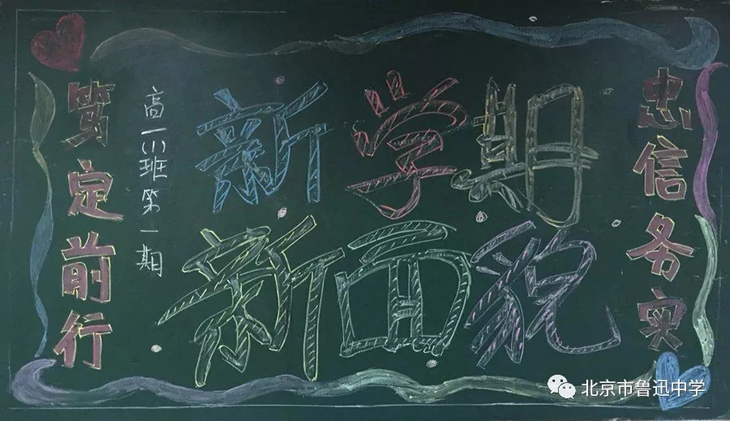 笃定前行
高一(1)班第一期
新学期
新面貌
忠信务实
北京市鲁迅中学